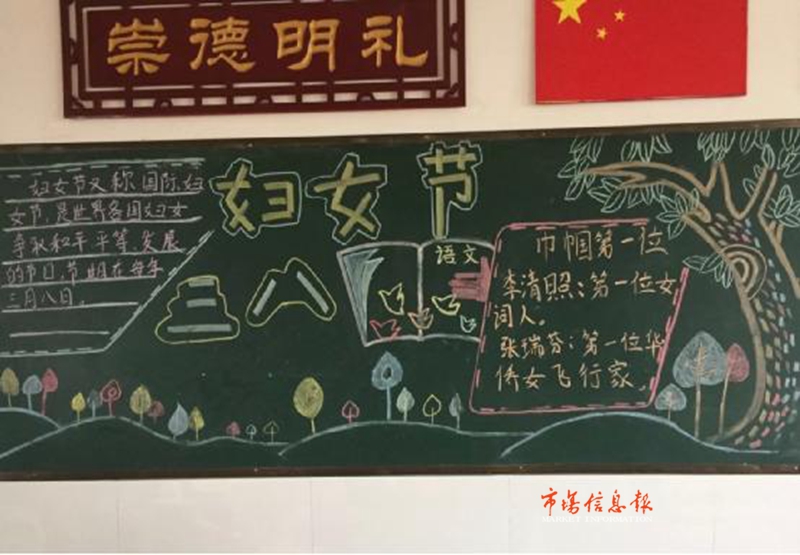 崇德明礼
妇女节
三八
妇女节又称国际妇
女节,是世界各国妇女
争取和平、平等、发展
的节日,节期在每年
三月八日。
语文
巾帼第一位
李清照:第一位女
词人。
张瑞芬:第一位华
侨女飞行家
市场信息报
MARKET INFORMATION